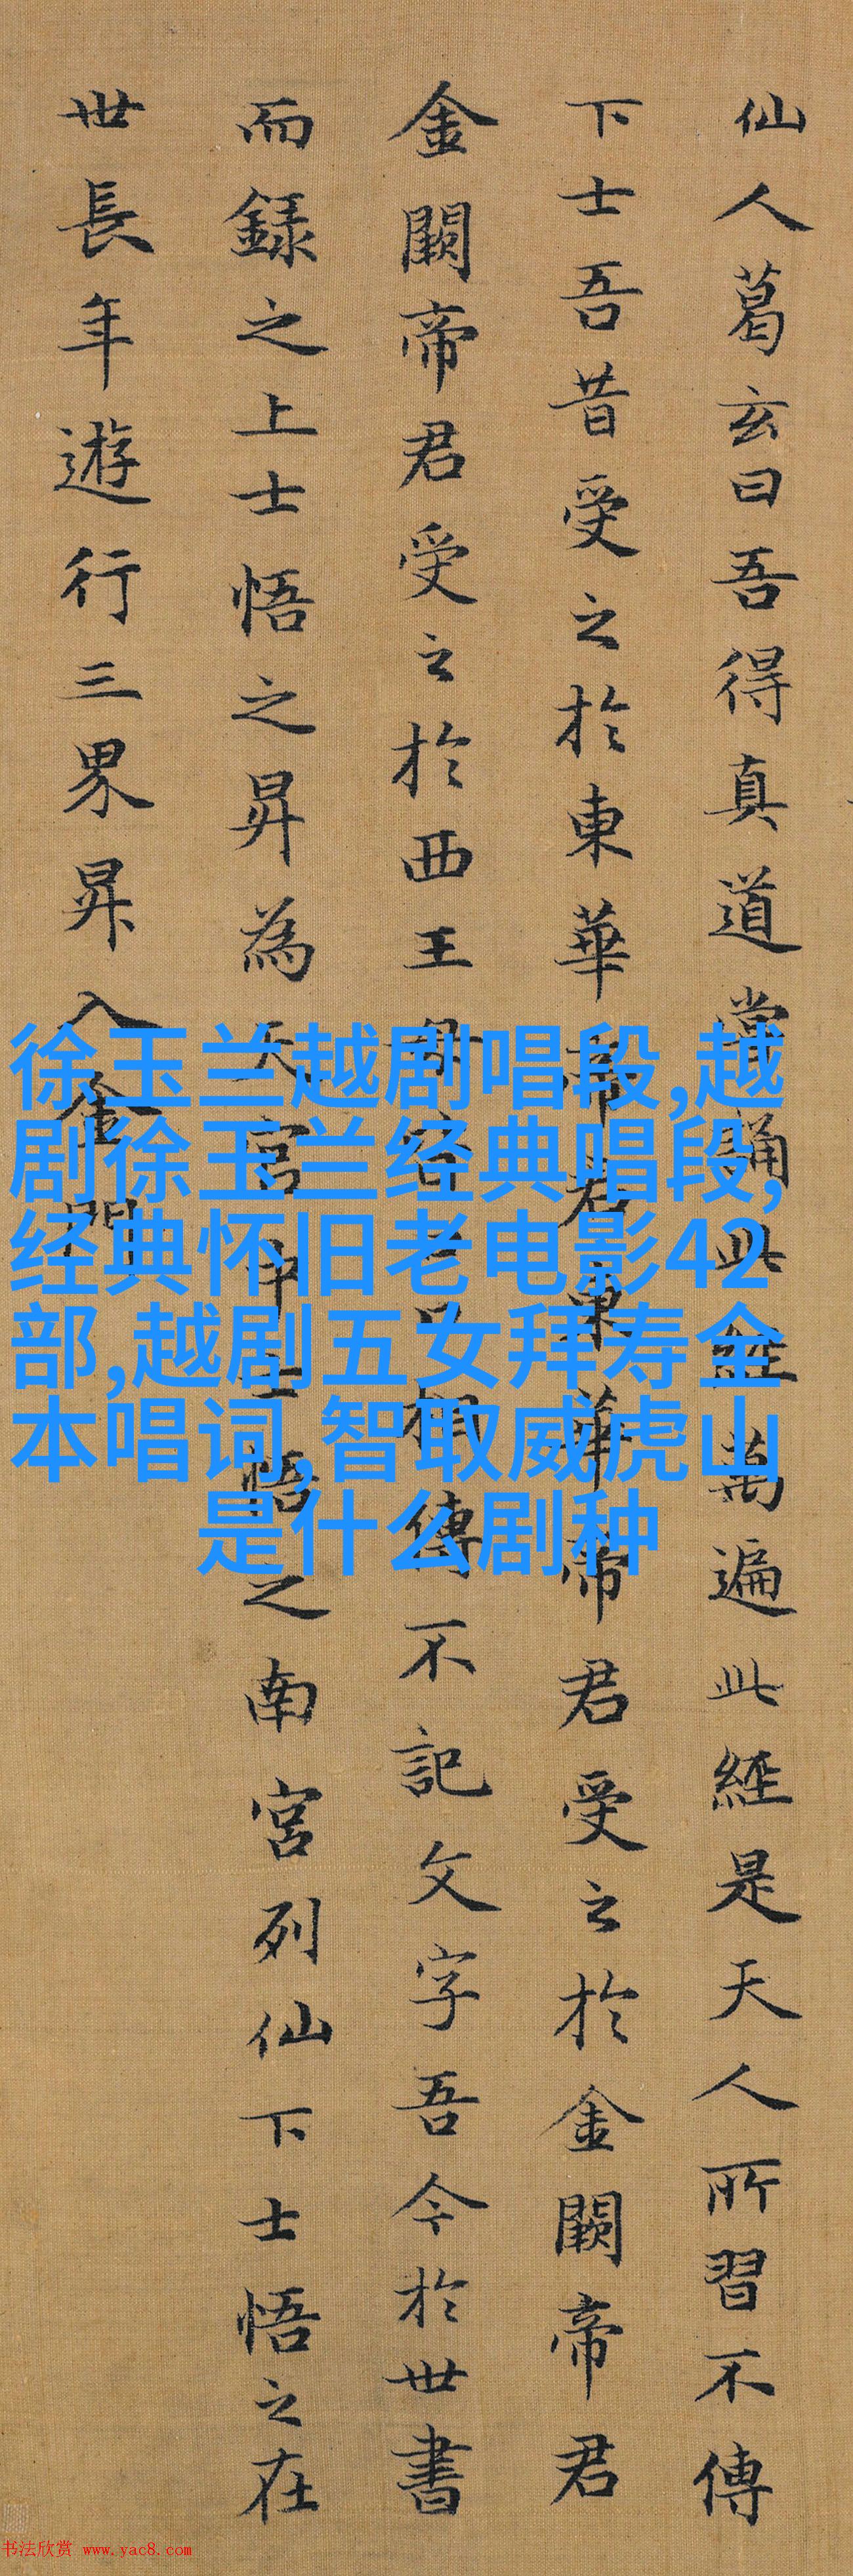 仙人葛玄曰吾得真道當誦此經萬遍此經是天人所習不傳
下士吾昔受之於東華帝君東華帝君受之於金闕帝君
金闕帝君受之於西王母皆口口相傳不記文字吾今於世書
而録之上士悟之昇為天官中士悟之南宮列仙下士悟之在
世長年遊行三界昇入金門
徐玉兰越剧唱段,越
剧徐玉兰经典唱段,
经典怀旧老电影42
部,越剧五女拜寿全
本唱词,智取威虎山
是什么剧种
书法欣赏 www.yac8.com